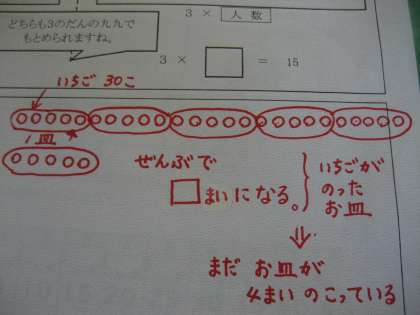 3 × 人数
どちらも3のだんの九九で
もとめられますね。
3 × □ = 15
いちご 30こ
1皿
ぜんぶで
□まいになる。
いちごが
のった
お皿
まだ お皿が
4まい のこっている